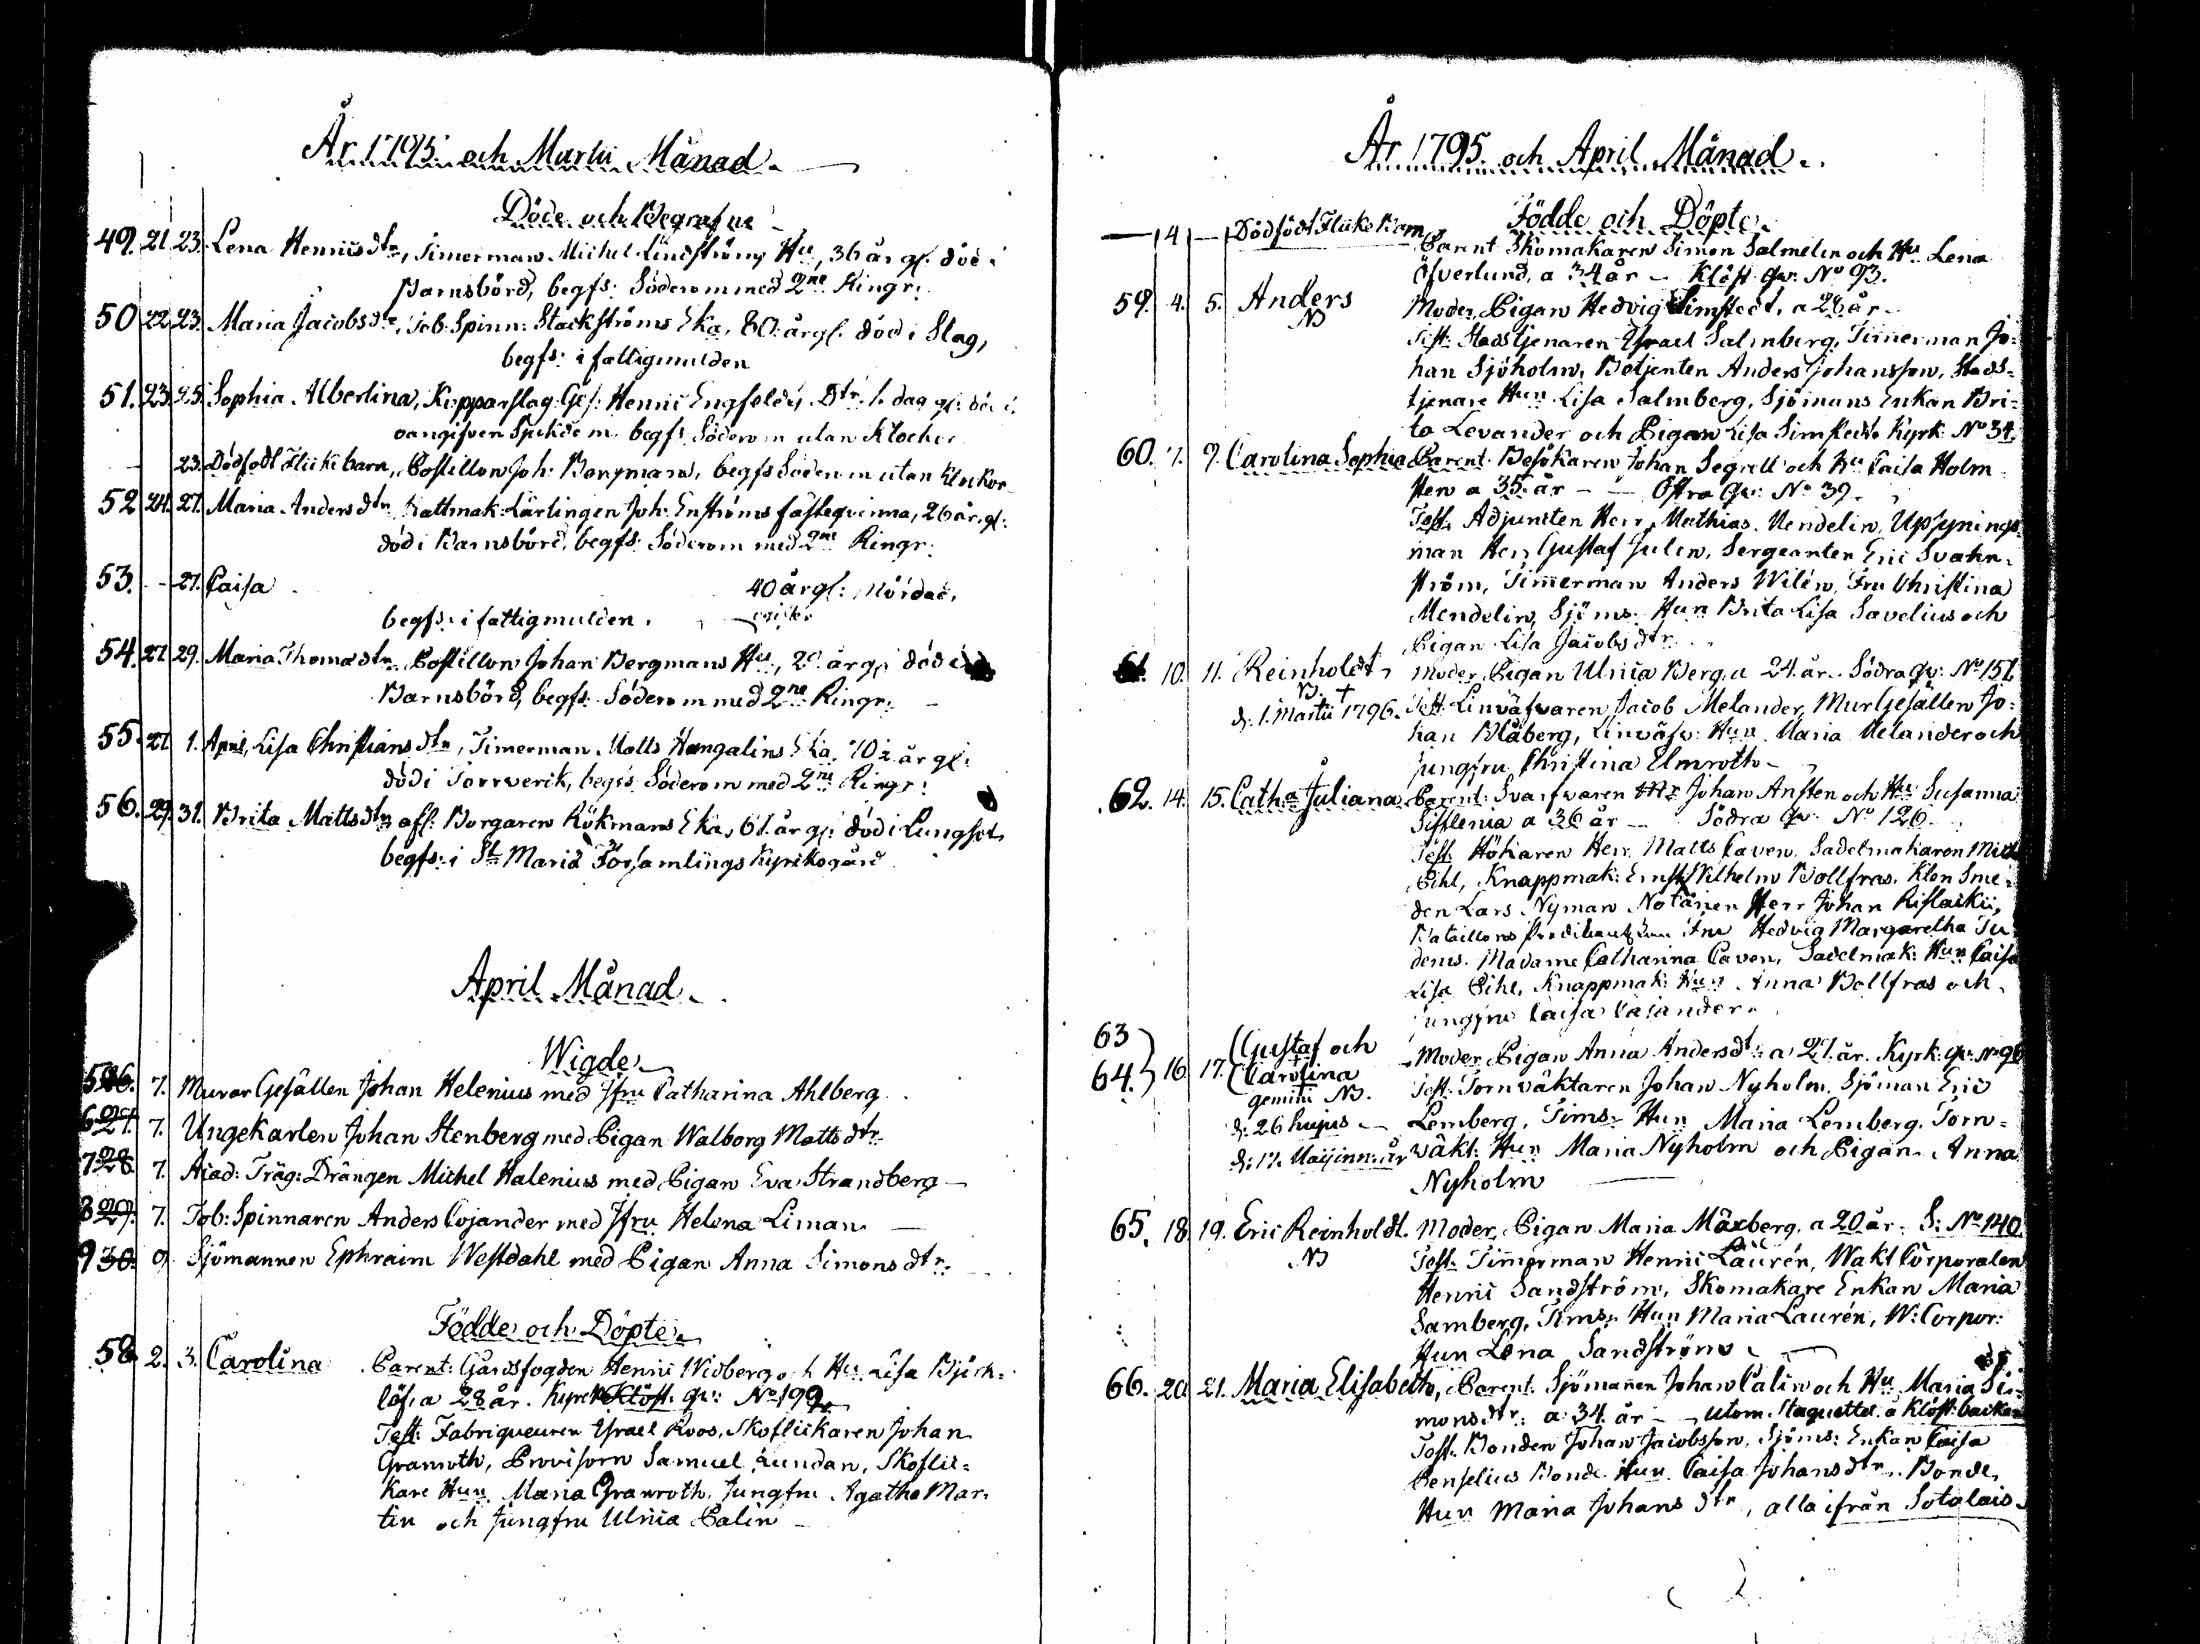 År 1795 och Martii Månad.
Döde och Begrafne
49. 21 23. Lena Henricsdtr, Timerman Michel Lindströms Hu, 36 år gl. död i
Barnsbörd, begfs: Söderom med 2ne Ringr:
50 22 23. Maria Jacobsdtr, Tob: Spinn: Stackströms Eka, 80: år gl. död i Slag,
begfs: i fattigmulden
51. 23 25. Sophia Albertina, Kopparslag: Ges: Henric Dtr, 1. dag gl: död i
oangifven Sjukdom begfs Söderom utan Klockor
23. Dödfödt Flickebarn, Postillon Joh: Bergmans, begfs Söderom utan Klockor
52 24. 27. Maria Andersdtr Hattmak: Lärlingen Joh: Enströms fästeqvinna, 26 år gl:
död i Barnsbörd, begfs: Söderom med 2ne Ringr:
53. - 27. Caisa 40 år gl: Mördad,
begfs: i fattigmulden.
54. 27 29. Maria Thomædtr Postillon Johan Bergmans Hu, 20 år gl: död i
Barnsbörd, begfs: Söderom med 2ne Ringr:
55. 27 1. April, Lisa Christiansdtr, Timerman Matts Hangalins Eka, 70½ år gl:
död i Torrverk, begfs: Söderom med 2ne Ringr:
56. 29. 31. Brita Mattsdtr afl: Borgaren Rökmans Eka, 61. år gl: död i Lungsot
begfs: i St Mariæ Församlings Kyrkogård
April Månad.
Wigde
7. Murar Gesällen Johan Helenius med Jfru Catharina Ahlberg
7. Ungekarlen Johan Stenberg med Pigan Walborg Mattsdtr
7. Acad: Träg: Drängen Michel Halenius med Pigan Eva Strandberg
7. Tob: Spinnaren Anders Cojander med Jfru Helena Liman
9 Sjömannen Ephraim Westdahl med Pigan Anna Simonsdtr:
Födde och Döpte
58. 2. 3. Carolina Parent: Gårdsfogden Henric Widberg och Hu Lisa Björk-
löf, a 28 år. Kyrk Klöst: qv: No 199
Test: Fabriqueuren Israel Roos, Skoflickaren Johan
Granroth, Provisorn Samuel Lundan, Skoflic-
kare Hun Maria Granroth, Jungfru Agatha Mar-
tin och Jungfru Ulrica Palin
År 1795. och April Månad.
Födde och Döpte.
- 4 - Dödfödt Flicke Barn Parent Skomakaren Simon Salmelin och Hu Lena
Öfverlund, a 34 år - Klöst qv: No 93.
59. 4. 5. Anders Moder, Pigan Hedvig Simstedt, a 28 år
NB Test: Stadstjenaren Israel Salmberg, Timerman Jo-
han Sjöholm, Betjenten Anders Johansson, Stads-
tjenare Hun Lisa Salmberg, Sjömans Enkan Bri-
ta Levander och Pigan Lisa Simstedt. Kyrk: No 34.
60. 7. 9. Carolina Sophia Parent: Besökaren Johan Segrell och Hu Caisa Holm
sten a 35 år - Östra qv: No 39.
Test. Adjuncten Herr Mathias Mendelin, Upsynings-
man Herr Gustaf Julin, Sergeanten Eric Svahn-
ström, Timerman Anders Wilén, Fru Christina
Mendelin, Sjöms: Hun Brita Lisa Savelius och
Pigan Lisa Jacobsdtr
61. 10. 11. Reinholdt Moder, Pigan Ulrica Berg, a 24. år. Södra qv: No 151
NB. + Test: Linväfvaren Jacob Melander, Mur Gesällen Jo-
d: 1. Martii 1796. han Blåberg, Linväfv: Hun Maria Melander och
Jungfru Christina Elmroth
62. 14. 15. Catha Juliana Parent: Svarfvaren Mr Johan Ansten och Hu Susanna
a 36 år Södra qv: No 126
Test: Hökaren Herr Matts Caven, Sadelmakaren Mich
Pihl, Knappmak: Ernst Wilhelm Bollfras, Klen Sme-
den Lars Nyman Notarien Herr Johan
Fru Hedvig Margaretha Tu-
denus. Madame Catharina Caven, Sadelmak: Hun Caisa
Lisa Pihl, Knappmak: Hun Anna Bollfras och
Jungfru Caisa Cajander.
63 Gustaf och
64. 16 17. Carolina Moder, Pigan Anna Andersdtr: a 27. år. Kyrk: qv: No 96
gemini NB. Test: Tornväktaren Johan Nyholm, Sjöman Eric
d: 26 hujus Lemberg, Tims: Hun Maria Lemberg, Torn-
d: 17. Maij inn: år wäkt: Hun Maria Nyholm och Pigan Anna
Nyholm
65. 18 19. Eric Reinholdt. Moder, Pigan Maria Mäxberg, a 20 år. S: No 140.
NB Test: Timerman Henric Laurén, Wakt Corporalen
Henric Sandström, Skomakare Enkan Maria
Samberg, Tims: Hun Maria Laurén, W: Corpor:
Hun Lena Sandström
66. 20 21. Maria Elisabeth, Parent: Sjömannen Johan Palin och Hu Maria Si-
monsdtr: a 34 år - utom Staquettet å Klöst: backen
Test: Bonden Johan Jacobsson, Sjöms: Enkan Caisa
Penselius Bonde Hun Caisa Johansdtr, Bonde
Hun Maria Johans dtr, alla ifrån Sotalais